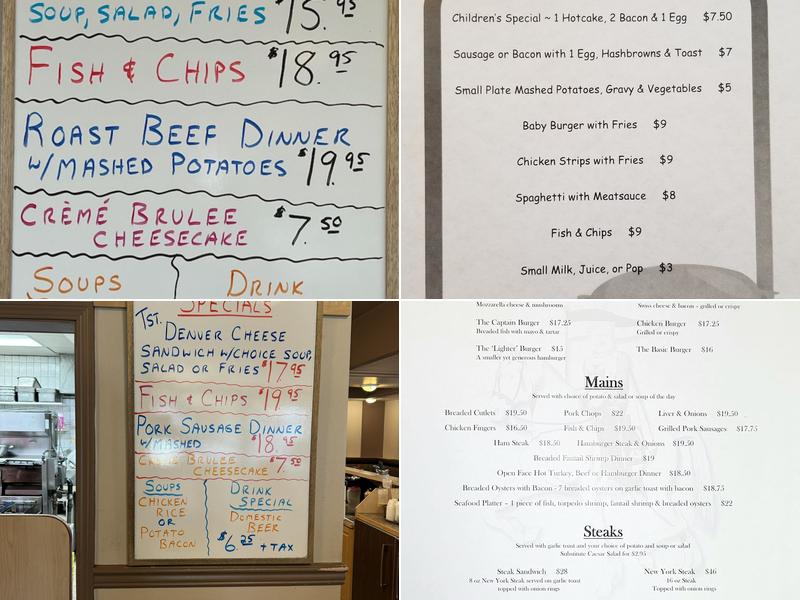 SOUP, SALAD, FRIES $15.95
FISH & CHIPS $18.95
ROAST BEEF DINNER
W/MASHED POTATOES $19.95
CRÈMÉ BRULEE
CHEESECAKE $7.50
SOUPS
DRINK
Children's Special ~ 1 Hotcake, 2 Bacon & 1 Egg $7.50
Sausage or Bacon with 1 Egg, Hashbrowns & Toast $7
Small Plate Mashed Potatoes, Gravy & Vegetables $5
Baby Burger with Fries $9
Chicken Strips with Fries $9
Spaghetti with Meatsauce $8
Fish & Chips $9
Small Milk, Juice, or Pop $3
SPECIALS
TST. DENVER CHEESE
SANDWICH W/CHOICE SOUP,
SALAD OR FRIES $17.95
FISH & CHIPS $19.95
PORK SAUSAGE DINNER
W/MASHED $18.95
CRÈME BRULEE
CHEESECAKE $7.50
SOUPS
CHICKEN
RICE
OR
POTATO
BACON
DRINK
SPECIAL
DOMESTIC
BEER
$6.25 + TAX
Mozzarella cheese & mushrooms
Swiss cheese & bacon - grilled or crispy
The Captain Burger $17.25
Breaded fish with mayo & tartar
Chicken Burger $17.25
Grilled or crispy
The 'Lighter' Burger $15
A smaller yet generous hamburger
The Basic Burger $16
Mains
Served with choice of potato & salad or soup of the day
Breaded Cutlets $19.50 Pork Chops $22 Liver & Onions $19.50
Chicken Fingers $16.50 Fish & Chips $19.50 Grilled Pork Sausages $17.75
Ham Steak $18.50 Hamburger Steak & Onions $19.50
Breaded Fantail Shrimp Dinner $19
Open Face Hot Turkey, Beef or Hamburger Dinner $18.50
Breaded Oysters with Bacon - 7 breaded oysters on garlic toast with bacon $18.75
Seafood Platter ~ 1 piece of fish, torpedo shrimp, fantail shrimp & breaded oysters $22
Steaks
Served with garlic toast and your choice of potato and soup or salad
Substitute Caesar Salad for $2.95
Steak Sandwich $28
8 oz New York Steak served on garlic toast
topped with onion rings
New York Steak $46
16 oz Steak
Topped with onion rings